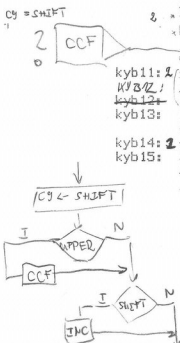 CY = SHIFT
2
2 CCF
0
kyb11: 2
KYB12:
kyb12:
kyb13:
kyb14: 2
kyb15:
CY ← SHIFT
I UPPER N
CCF
I SHIFT N
INC